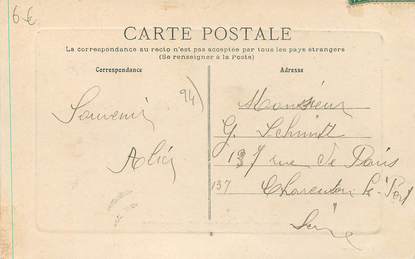 6€
CARTE POSTALE
La correspondance au recto n'est pas acceptée par tous les pays étrangers
(Se renseigner à la Poste)
Correspondance
Adresse
94)
Souvenir
Monsieur
G. Schmidt
137 rue de Paris
137
Charenton le Pont
Seine